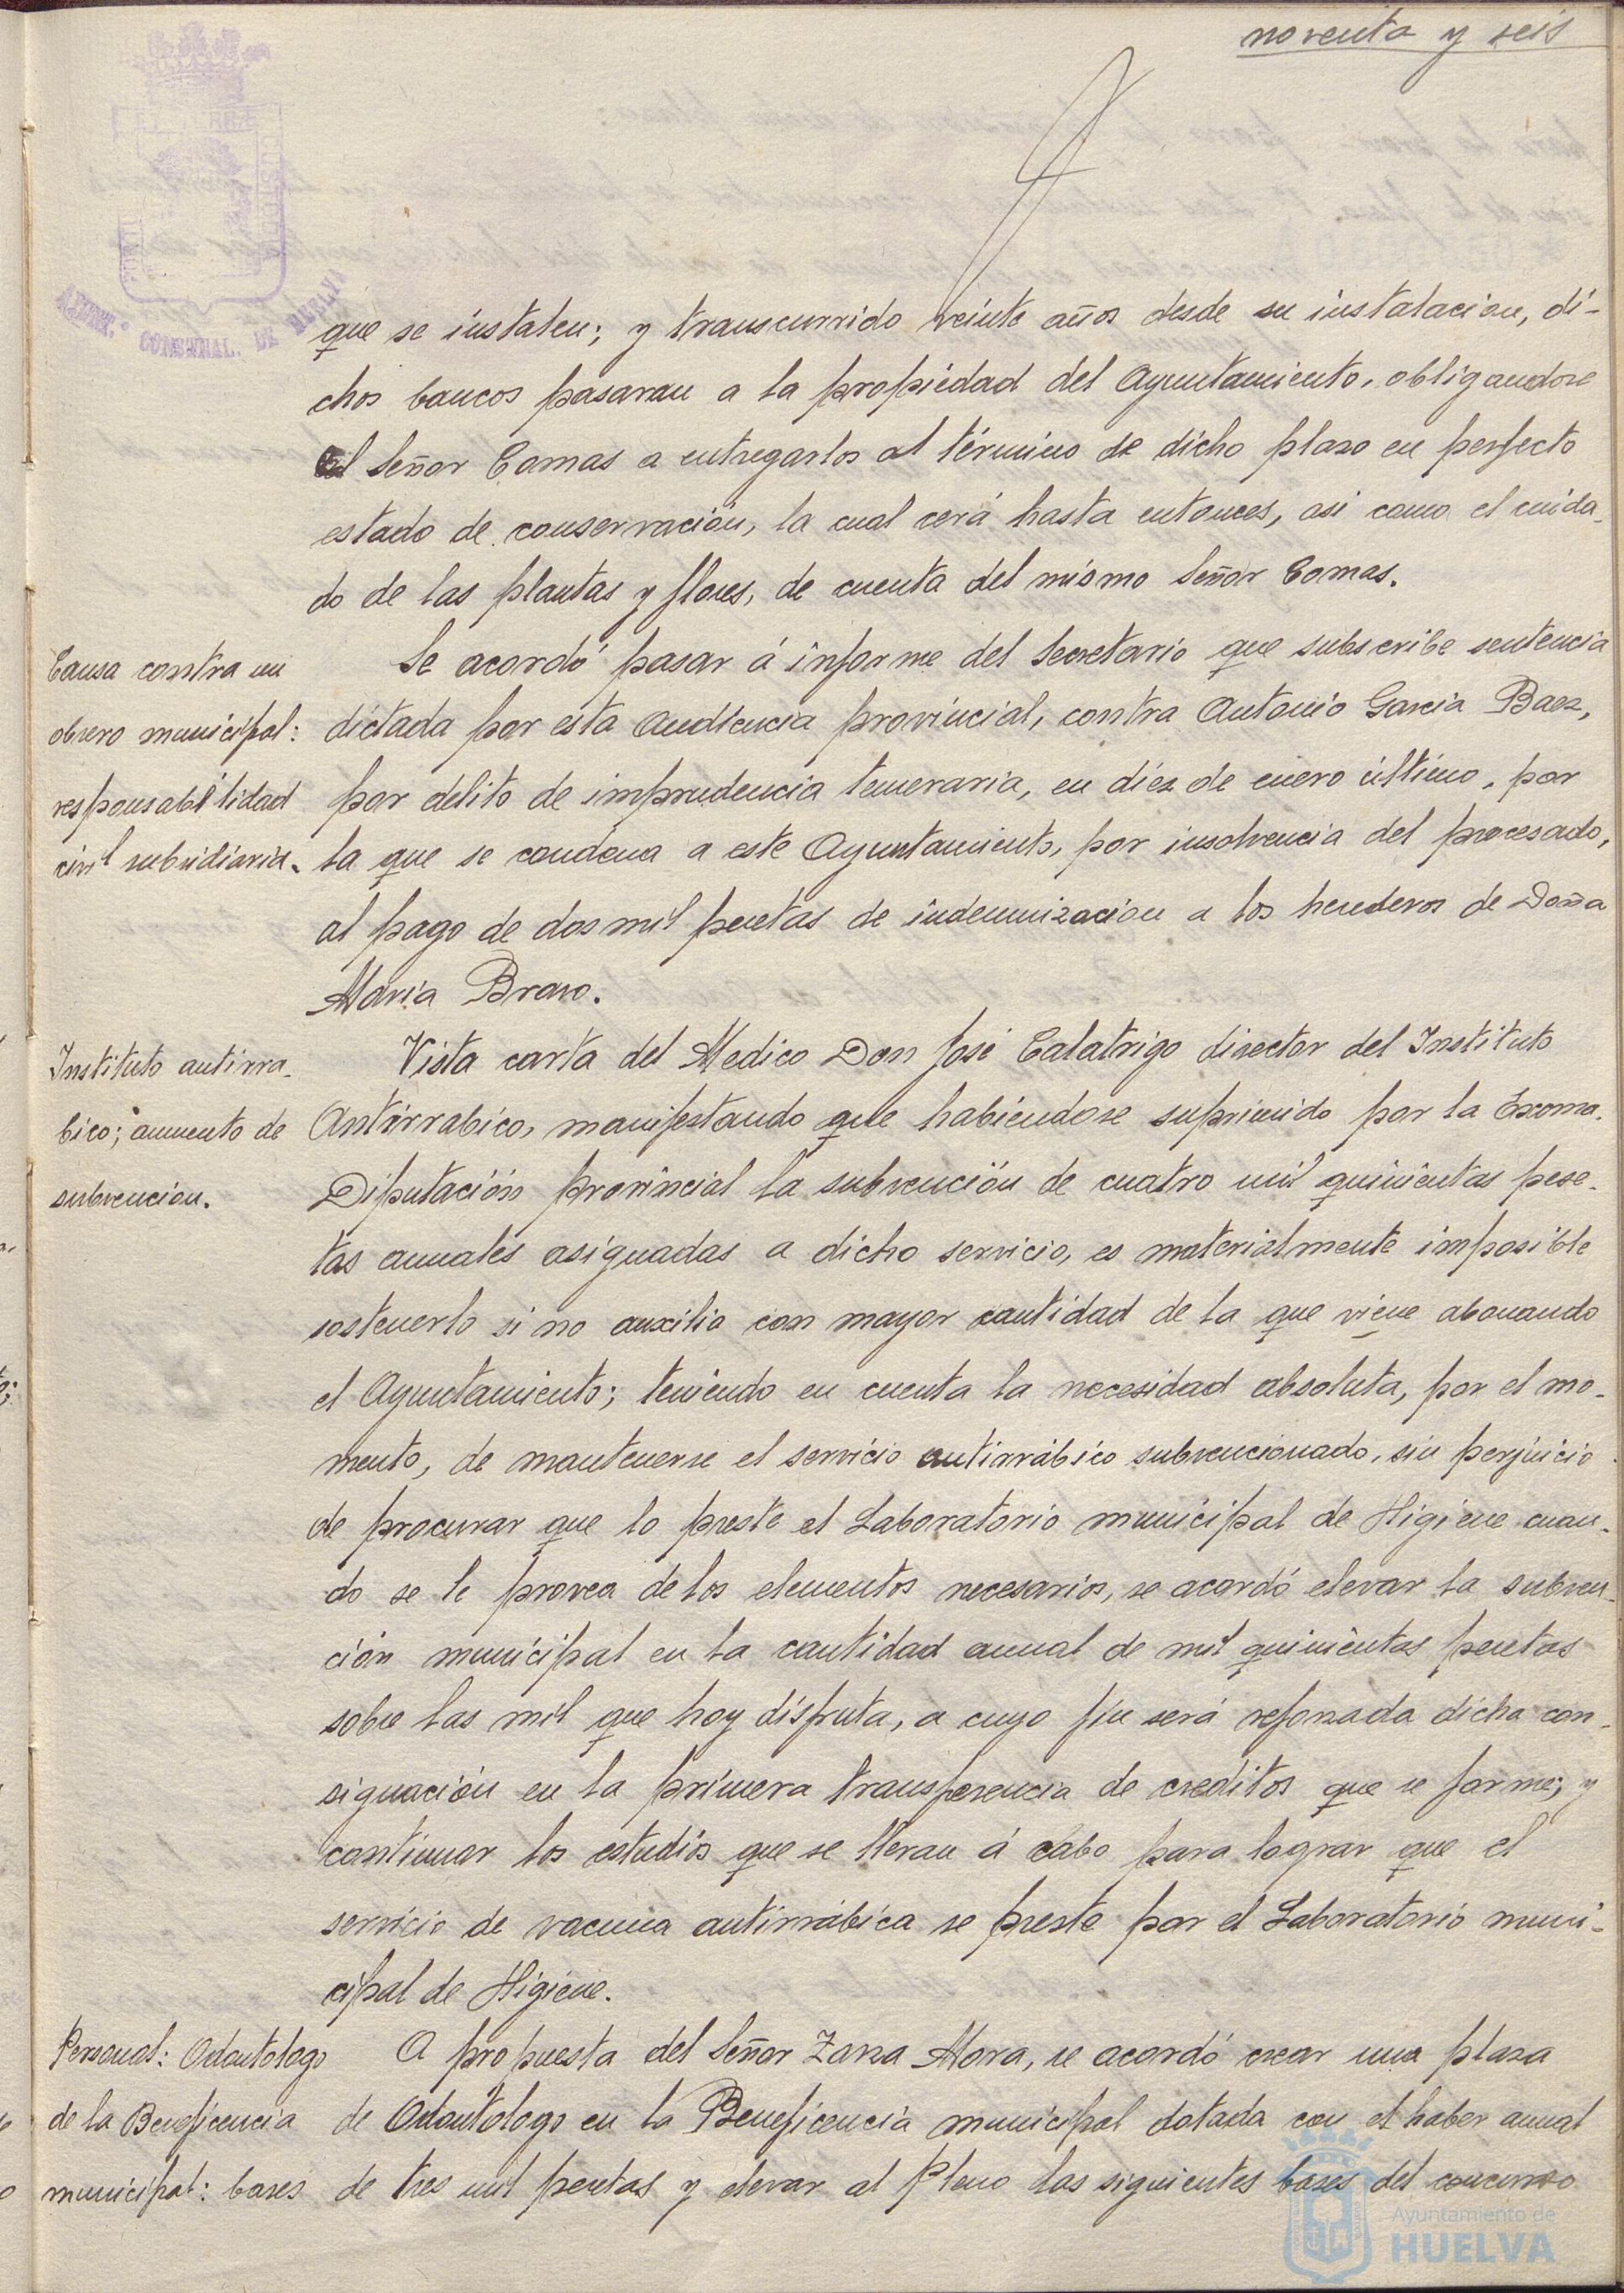 noventa y seis
AYUNT. CONSTNAL. DE HUELVA
que se instalen; y transcurrido veinte años desde su instalacion, di-
chos bancos pasaran a la propiedad del Ayuntamiento, obligandose
el Señor Comas a entregarlos al término de dicho plazo en perfecto
estado de conservación, la cual será hasta entonces, asi como el cuida-
do de las plantas y flores, de cuenta del mismo Señor Comas.
Causa contra un
obrero municipal:
responsabilidad
civil subsidiaria.
Se acordó pasar á informe del Secretario que subscribe sentencia
dictada por esta Audiencia provincial, contra Antonio Garcia Baez,
por delito de imprudencia temeraria, en diez de enero último, por
la que se condena a este Ayuntamiento, por insolvencia del procesado,
al pago de dos mil pesetas de indemnizacion a los herederos de Doña
Maria Bravo.
Instituto antirra-
bico; aumento de
subvencion.
Vista carta del Medico Don José Calatrigo director del Instituto
Antirrabico, manifestando que habiendose suprimido por la Excma.
Diputación provincial la subvención de cuatro mil quinientas pese-
tas anuales asignadas a dicho servicio, es materialmente imposible
sostenerlo si no auxilia con mayor cantidad de la que viene abonando
el Ayuntamiento; teniendo en cuenta la necesidad absoluta, por el mo-
mento, de mantenerse el servicio antirrábico subvencionado, sin perjuicio
de procurar que lo preste el Laboratorio municipal de Higiene cuan-
do se le provea de los elementos necesarios, se acordó elevar la subven-
ción municipal en la cantidad anual de mil quinientas pesetas
sobre las mil que hoy disfruta, a cuyo fin será reforzada dicha con-
signación en la primera transferencia de creditos que se forme; y
continuar los estudios que se llevan á cabo para lograr que el
servicio de vacuna antirrábica se preste por el Laboratorio muni-
cipal de Higiene.
Personal: Odontologo
de la Beneficencia
municipal: bases
A propuesta del Señor Zarza Mora, se acordó crear una plaza
de Odontologo en la Beneficencia municipal dotada con el haber anual
de tres mil pesetas y elevar al Pleno las siguientes bases del concurso
Ayuntamiento de
HUELVA